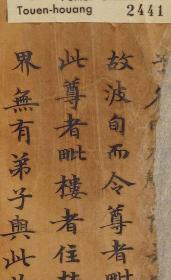 Touen-houang 2441
故波旬而令尊者毗
此尊者毗樓者住
界無有弟子與此